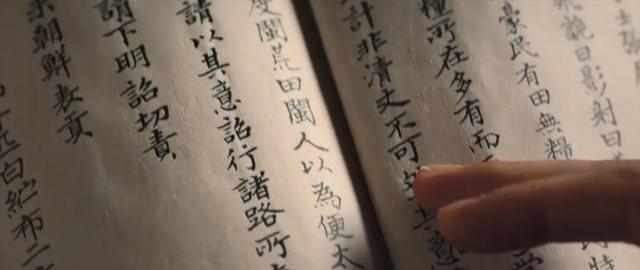 士張
飛詭曰影射曰
豪民有田無糧
種所在多有而
計非清丈不可
其意
度閩荒田閩人以為便太
請以其意詔行諸路所
請下明詔切責
朝鮮表貢
白紵布二